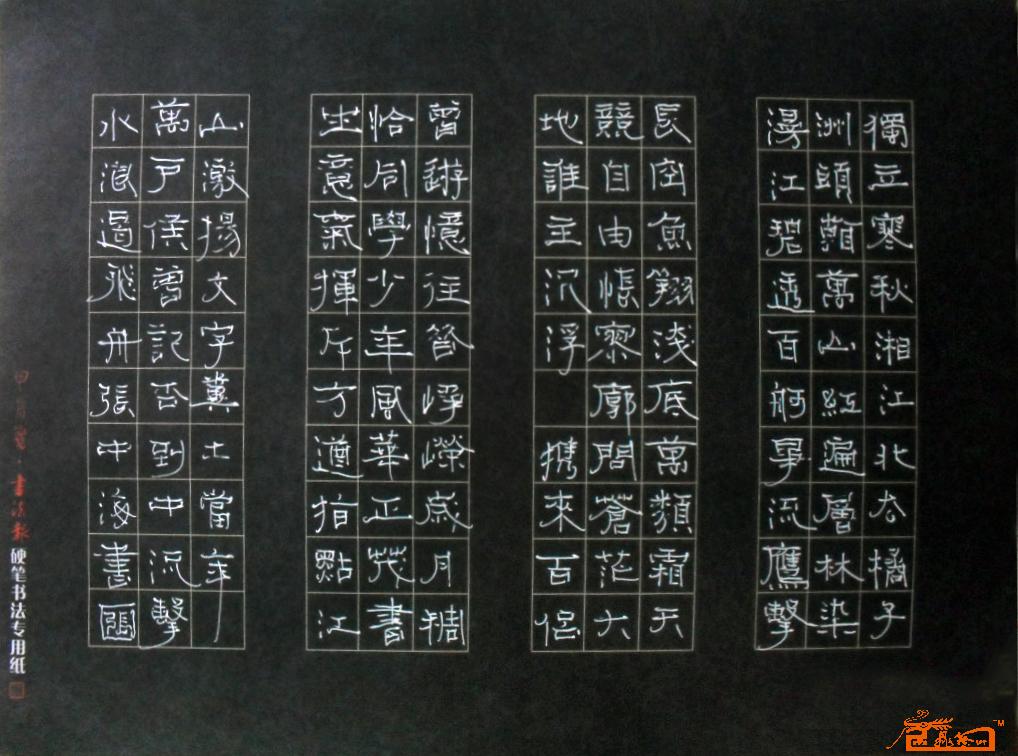 獨立寒秋湘江北去橘子
洲頭萬山紅遍層林染
漫江碧透百舸爭流鷹擊
長空魚翔淺底萬類霜天
競自由悵寥廓問蒼茫大
地誰主沉浮 携來百侶
曾游憶往昔崢嶸歲月稠
恰同學少年風華正茂書
生意氣揮斥方遒指點江
山激揚文字糞土當年
萬戶侯曾記否到中流擊
水浪遏飛舟張中海書
書法報硬笔书法专用纸